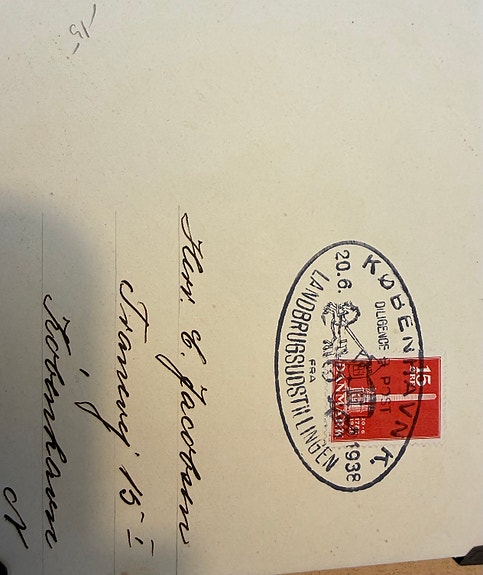 -15-
KØBENHAVN K.
DILIGENCE POST
20.6. 1938
FRA
LANDBRUGSUDSTILLINGEN
15
ØRE
DANMARK
Herr. C. Jacobsen
Tranevej 15-I
København
N